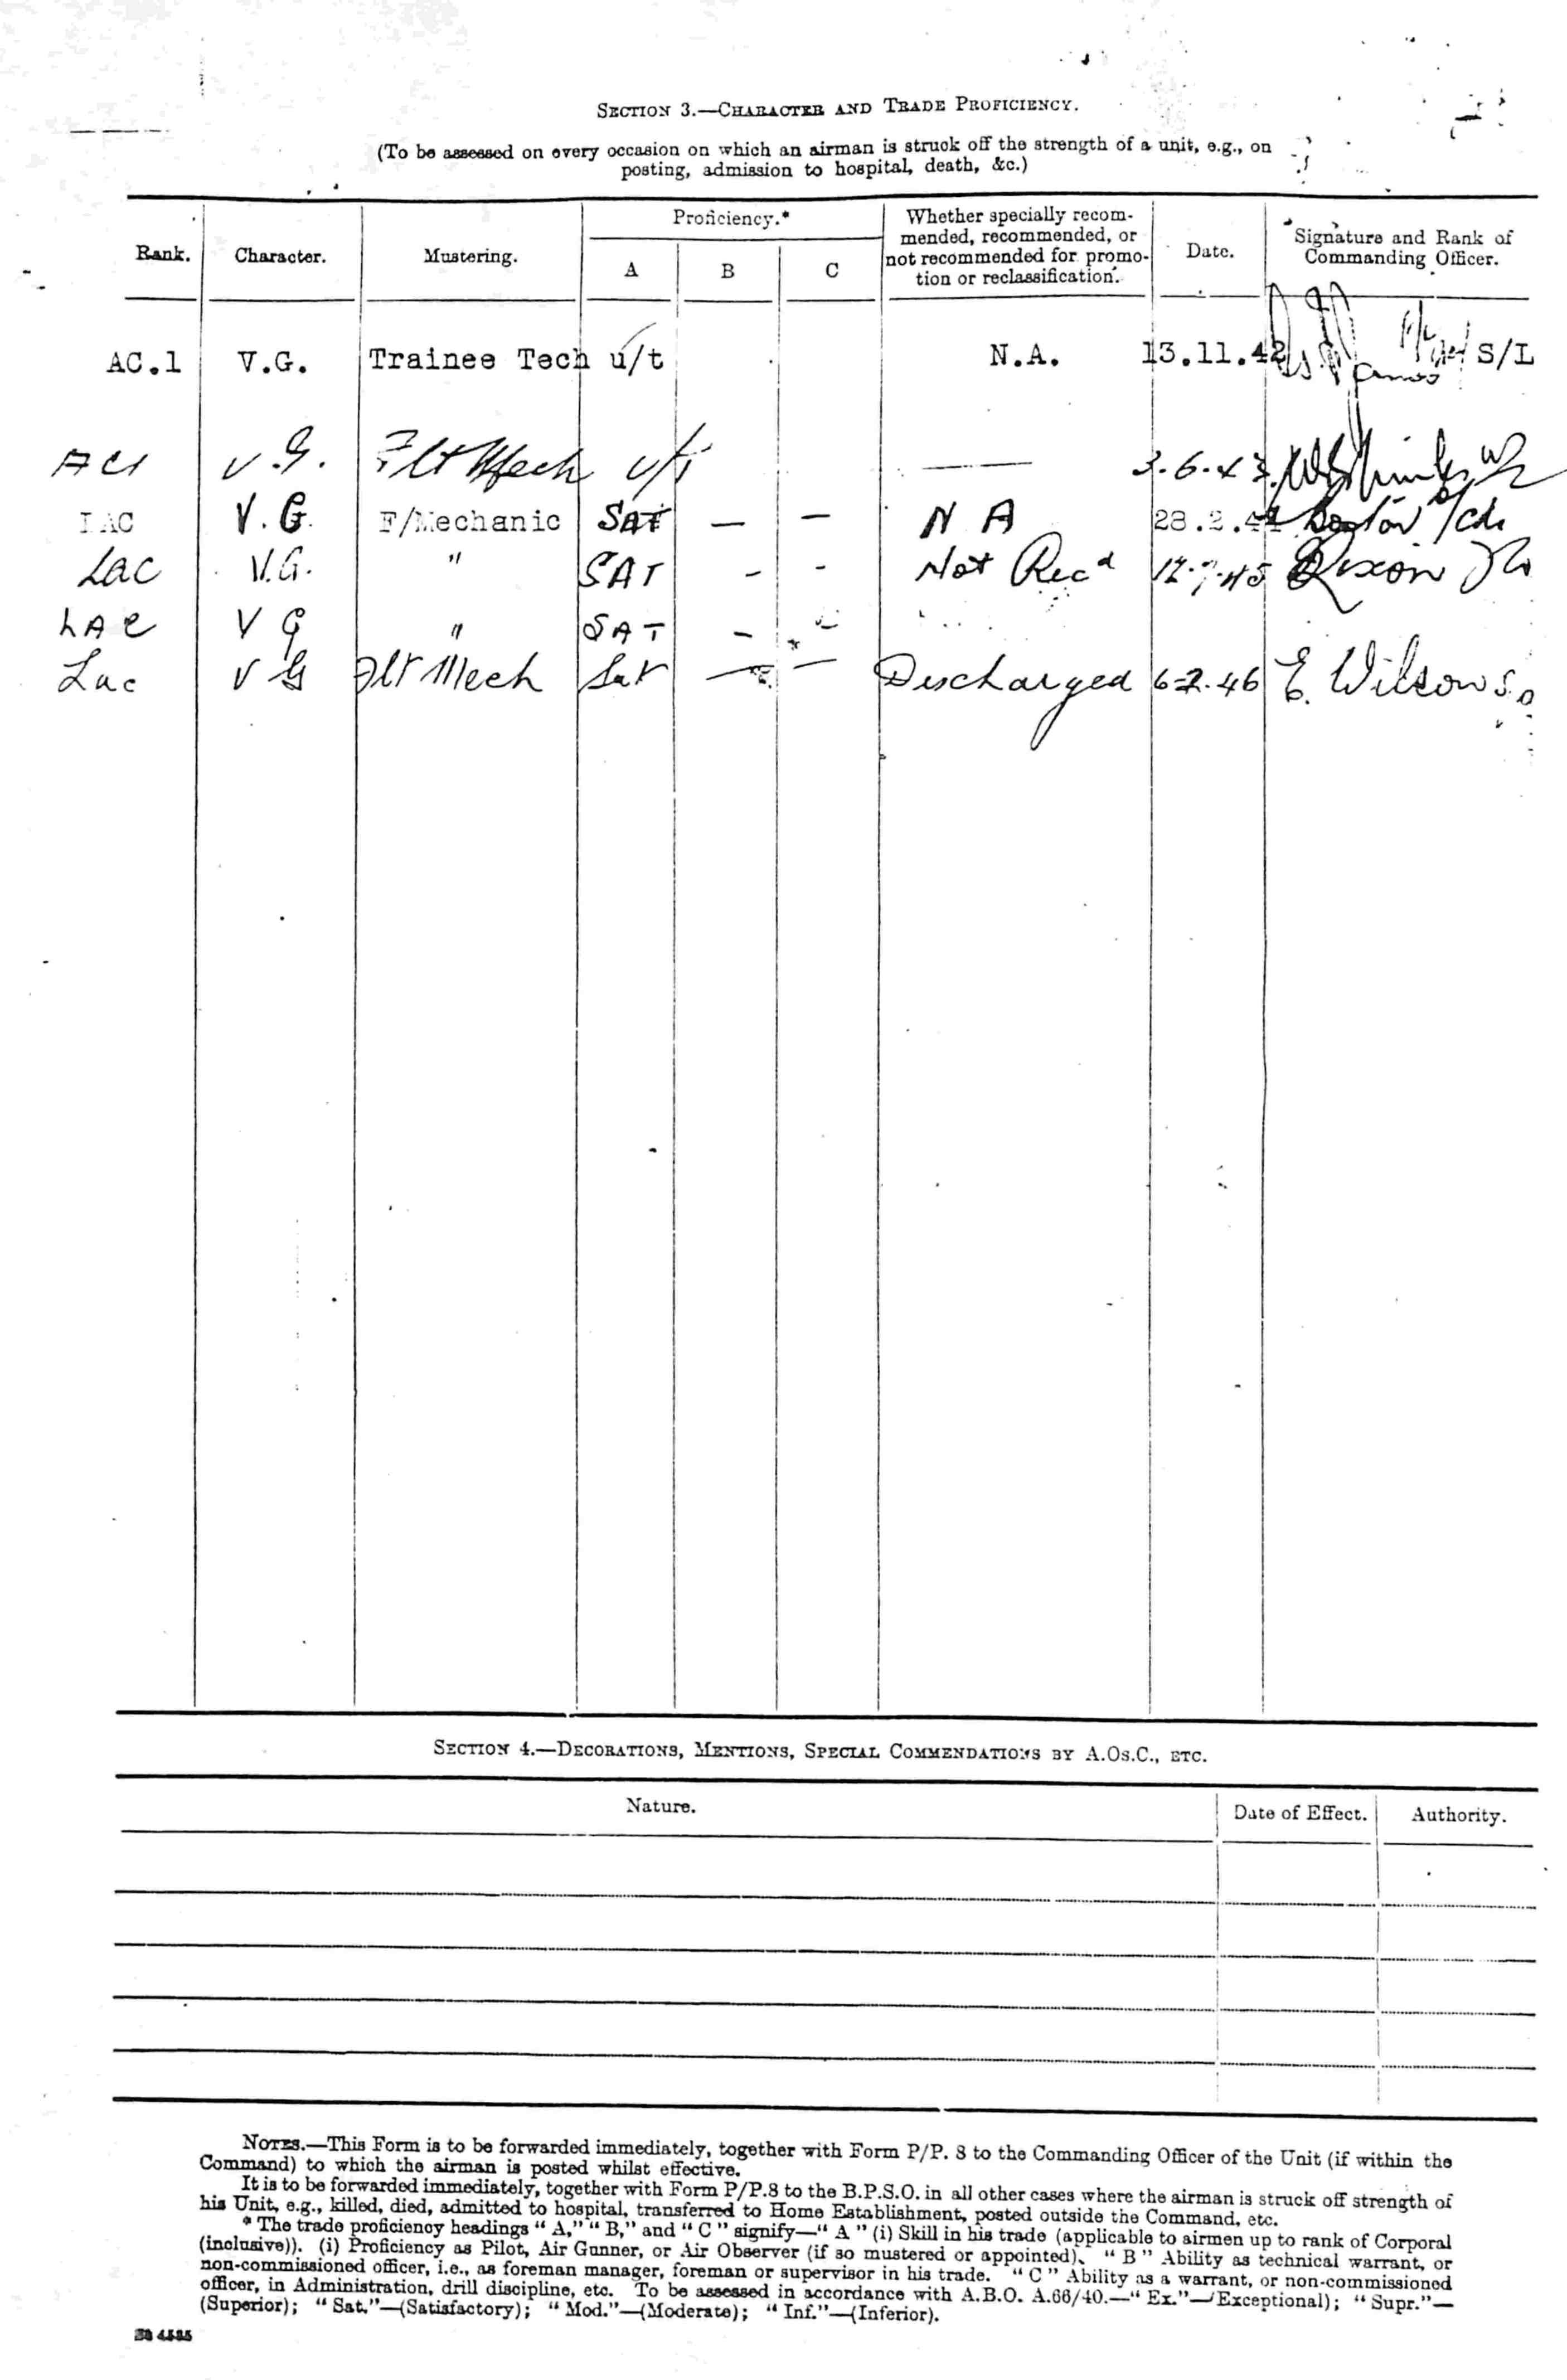 SECTION 3.—CHARACTER AND TRADE PROFICIENCY.
(To be assessed on every occasion on which an airman is struck off the strength of a unit, e.g., on
posting, admission to hospital, death, &c.)
Rank. Character. Mustering. Proficiency.* A B C Whether specially recommended, recommended, or not recommended for promotion or reclassification. Date. Signature and Rank of Commanding Officer.
AC.1 V.G. Trainee Tech u/t N.A. 13.11.42 S/L
AC1 V.G. Flt Mech u/t — 3.6.43
LAC V.G. F/Mechanic SAT — — N A 28.2.44
Lac V.G. " SAT - - Not Recd Dixon
LAC V G " SAT - -
Lac V G Flt Mech Sat — — Discharged 6-2.46 E. Wilson S.O
SECTION 4.—DECORATIONS, MENTIONS, SPECIAL COMMENDATIONS BY A.Os.C., ETC.
Nature. Date of Effect. Authority.
NOTES.—This Form is to be forwarded immediately, together with Form P/P. 8 to the Commanding Officer of the Unit (if within the
Command) to which the airman is posted whilst effective.
It is to be forwarded immediately, together with Form P/P.8 to the B.P.S.O. in all other cases where the airman is struck off strength of
his Unit, e.g., killed, died, admitted to hospital, transferred to Home Establishment, posted outside the Command, etc.
* The trade proficiency headings "A," "B," and "C" signify—"A" (i) Skill in his trade (applicable to airmen up to rank of Corporal
(inclusive)). (i) Proficiency as Pilot, Air Gunner, or Air Observer (if so mustered or appointed). "B" Ability as technical warrant, or
non-commissioned officer, i.e., as foreman manager, foreman or supervisor in his trade. "C" Ability as a warrant, or non-commissioned
officer, in Administration, drill discipline, etc. To be assessed in accordance with A.B.O. A.66/40.—"Ex."—(Exceptional); "Supr."—
(Superior); "Sat."—(Satisfactory); "Mod."—(Moderate); "Inf."—(Inferior).